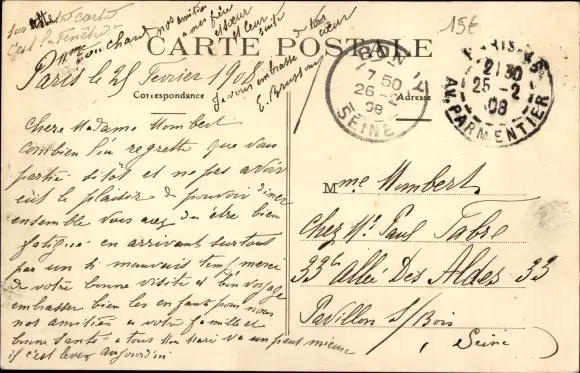 sur cette carte
c'est la fenêtre
Mme Fouchard nos amitiés
a mes frère
et sœur
et leur
suite
de tout
cœur
je vous embrasse
E. Brusson
15€
CARTE POSTALE
Paris le 25 Fevrier 1908
Correspondance
Adresse
BON
7 50
26 -
08
SEINE
PARIS
21 30
25 - 2
08
AV. PARMENTIER
Chere Madame Mombert
Combien l'on regrette que vous
partie sitôt et ne pas avoir
eût le plaisir de pouvoir diner
ensemble vous avez du etre bien
fatiguée en arrivant surtout
par un si mauvais temps merci
de votre bonne visite et bon voyage
embrasser bien les enfants pour nous
nos amitiés a votre famille et
bonne santé a tous Mon Mari va un peut mieux
il c'est lever aujourd'hui
Mme Mombert
Chez Mr Paul Fabre
33 Allée Des Aldes 33
Pavillon S/Bois
(Seine)